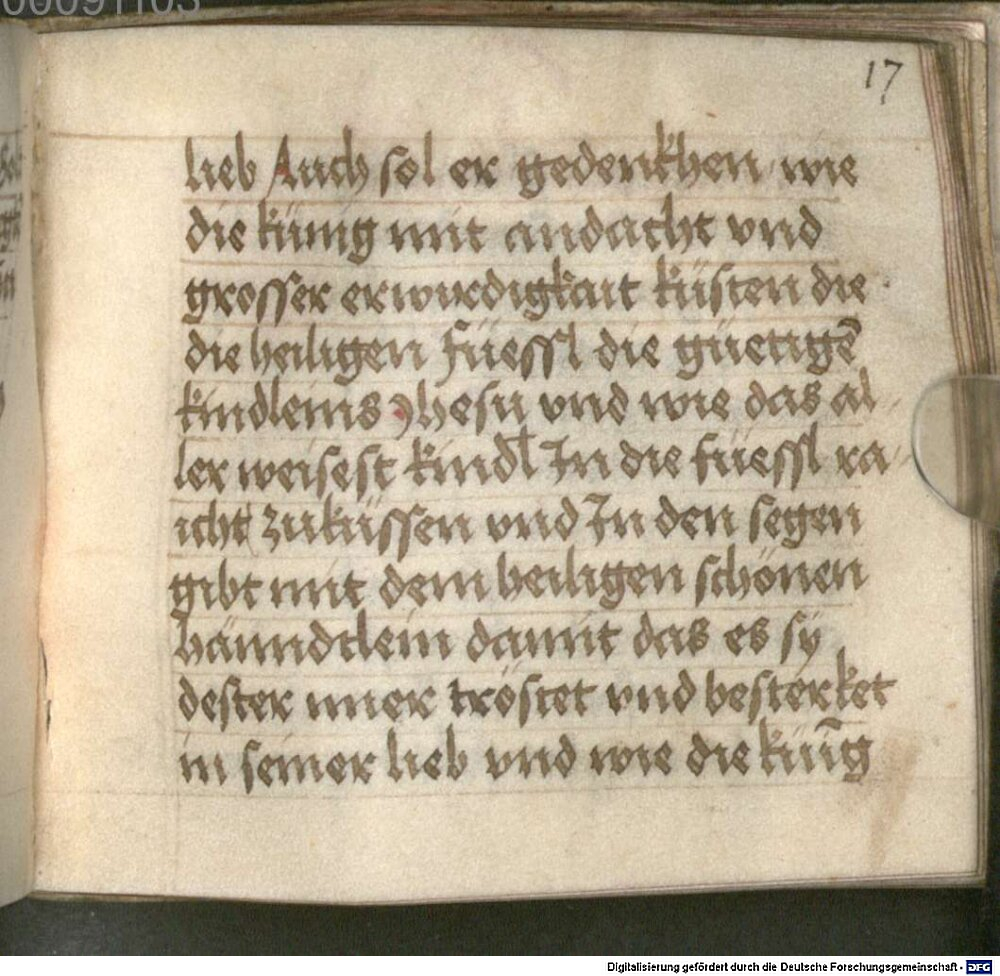 17
lieb Auch sol er gedenkhen wie
die künig mit andacht vnd
grosser erwirdigkait küsten die
die heiligen füessl die güetigē
kindleins yhesu vnd wie das al-
ler weisest kindl In die füessl ra-
icht zuküssen vnd In den segen
gibt mit dem heiligen schönen
hänndtlein damit das es sy
dester mer tröstet vnd besterket
in seiner lieb vnd wie die küng
Digitalisierung gefördert durch die Deutsche Forschungsgemeinschaft - DFG